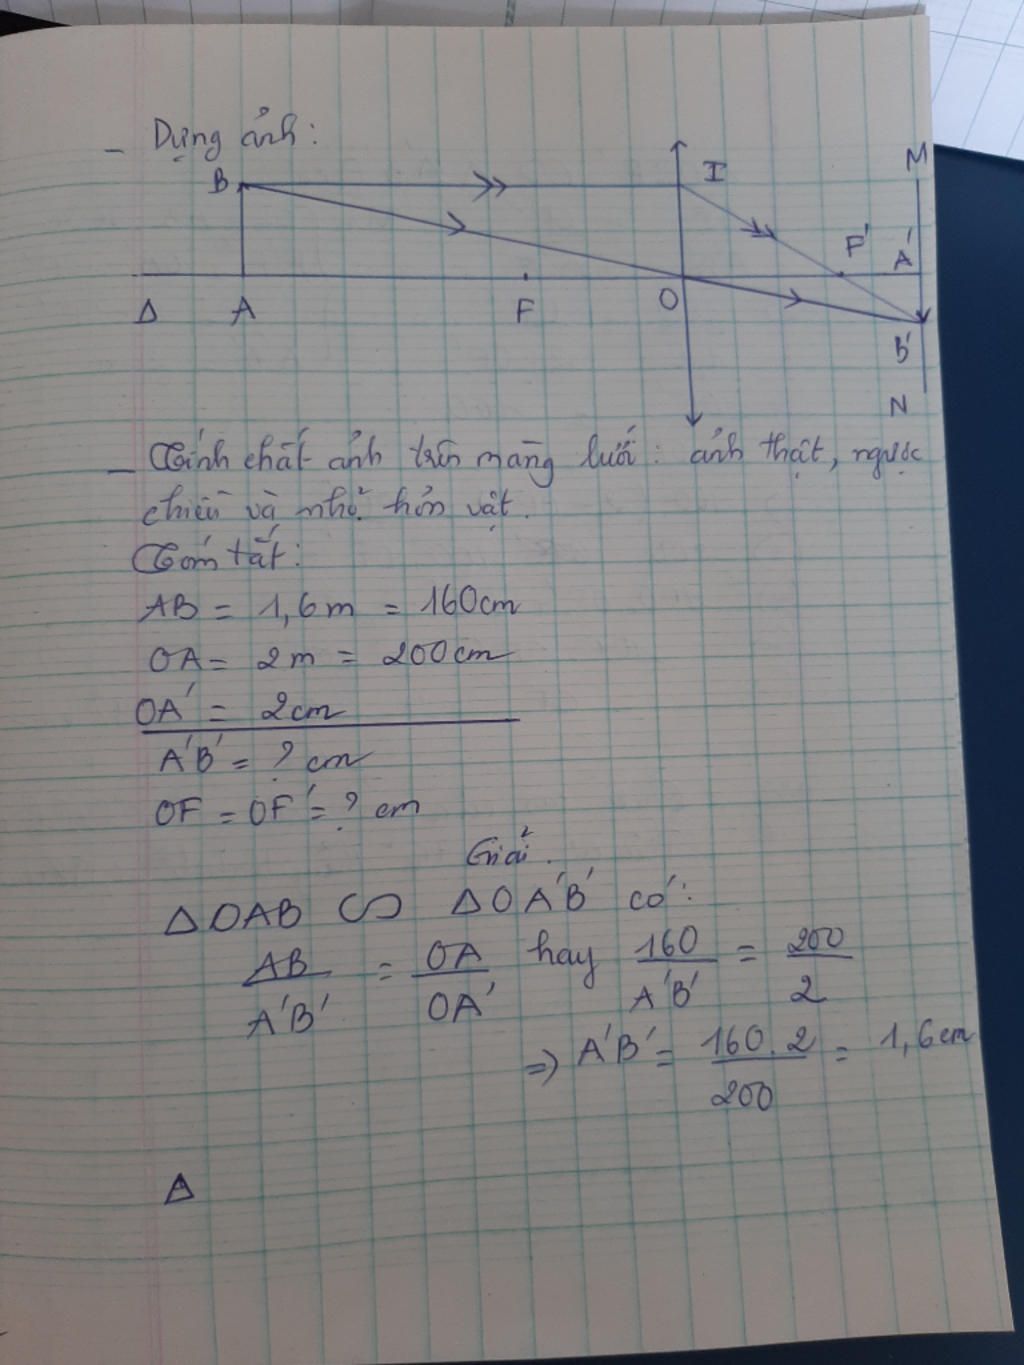 - Dựng ảnh:
B I M
F' A'
Δ A F O
B'
N
- Tính chất ảnh trên màng lưới: ảnh thật, ngược
chiều và nhỏ hơn vật.
Tóm tắt:
AB = 1,6m = 160cm
OA = 2m = 200cm
OA' = 2cm
A'B' = ? cm
OF = OF' = ? cm
Giải.
ΔOAB ∽ ΔOA'B' có:
AB/A'B' = OA/OA' hay 160/A'B' = 200/2
=> A'B' = 160.2/200 = 1,6cm
Δ